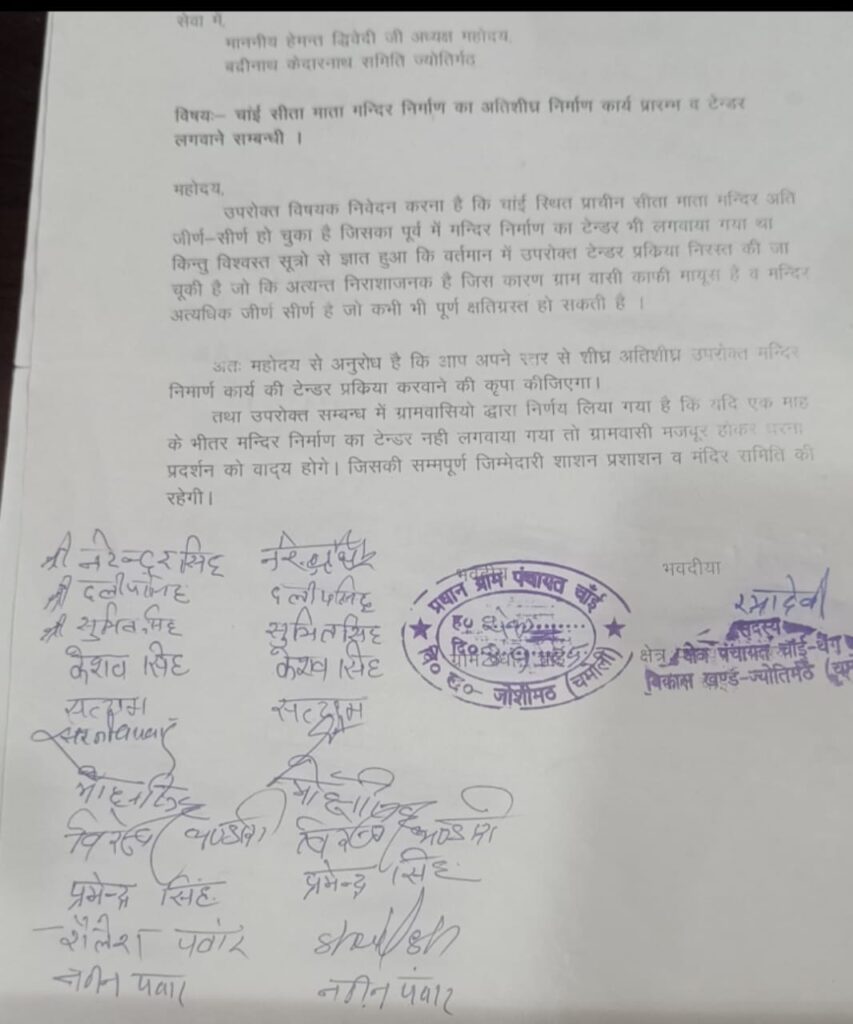 सेवा में,
माननीय हेमन्त द्विवेदी जी अध्यक्ष महोदय,
बद्रीनाथ केदारनाथ समिति ज्योतिर्मठ
विषयः– चांई सीता माता मन्दिर निर्माण का अतिशीघ्र निर्माण कार्य प्रारम्भ व टेन्डर
लगवाने सम्बन्धी ।
महोदय,
उपरोक्त विषयक निवेदन करना है कि चांई स्थित प्राचीन सीता माता मन्दिर अति
जीर्ण–सीर्ण हो चुका है जिसका पूर्व में मन्दिर निर्माण का टेन्डर भी लगवाया गया था
किन्तु विश्वस्त सूत्रो से ज्ञात हुआ कि वर्तमान में उपरोक्त टेन्डर प्रकिया निरस्त की जा
चूकी है जो कि अत्यन्त निराशाजनक है जिस कारण ग्राम वासी काफी मायूस है व मन्दिर
अत्यधिक जीर्ण सीर्ण है जो कभी भी पूर्ण क्षतिग्रस्त हो सकती है ।
अतः महोदय से अनुरोध है कि आप अपने स्तर से शीघ्र अतिशीघ्र उपरोक्त मन्दिर
निमार्ण कार्य की टेन्डर प्रकिया करवाने की कृपा कीजिएगा।
तथा उपरोक्त सम्बन्ध में ग्रामवासियो द्वारा निर्णय लिया गया है कि यदि एक माह
के भीतर मन्दिर निर्माण का टेन्डर नही लगवाया गया तो ग्रामवासी मजबूर होकर धरना
प्रदर्शन को वाद्य होगे। जिसकी सम्मपूर्ण जिम्मेदारी शाशन प्रशाशन व मंदिर समिति की
रहेगी।
श्री नरेन्दर सिंह
श्री दलीप सिंह दलीप सिंह
श्री सुमित सिंह सुमित सिंह
केशव सिंह केशव सिंह
सत्
भवदीय
प्रधान ग्राम पंचायत चाँई
ह०
दि०
ग्राम प्रधान
वि० ख०– जोशीमठ (चमोली)
भवदीया
रमा देवी
सदस्य
क्षेत्र
क्षेत्र पंचायत चाँई-थैंग
विकास खण्ड-ज्योतिर्मठ
प्रमेन्द्र सिंह प्रमेन्द्र सिंह
शैलेश पंवार
नवीन पंवार नवीन पंवार